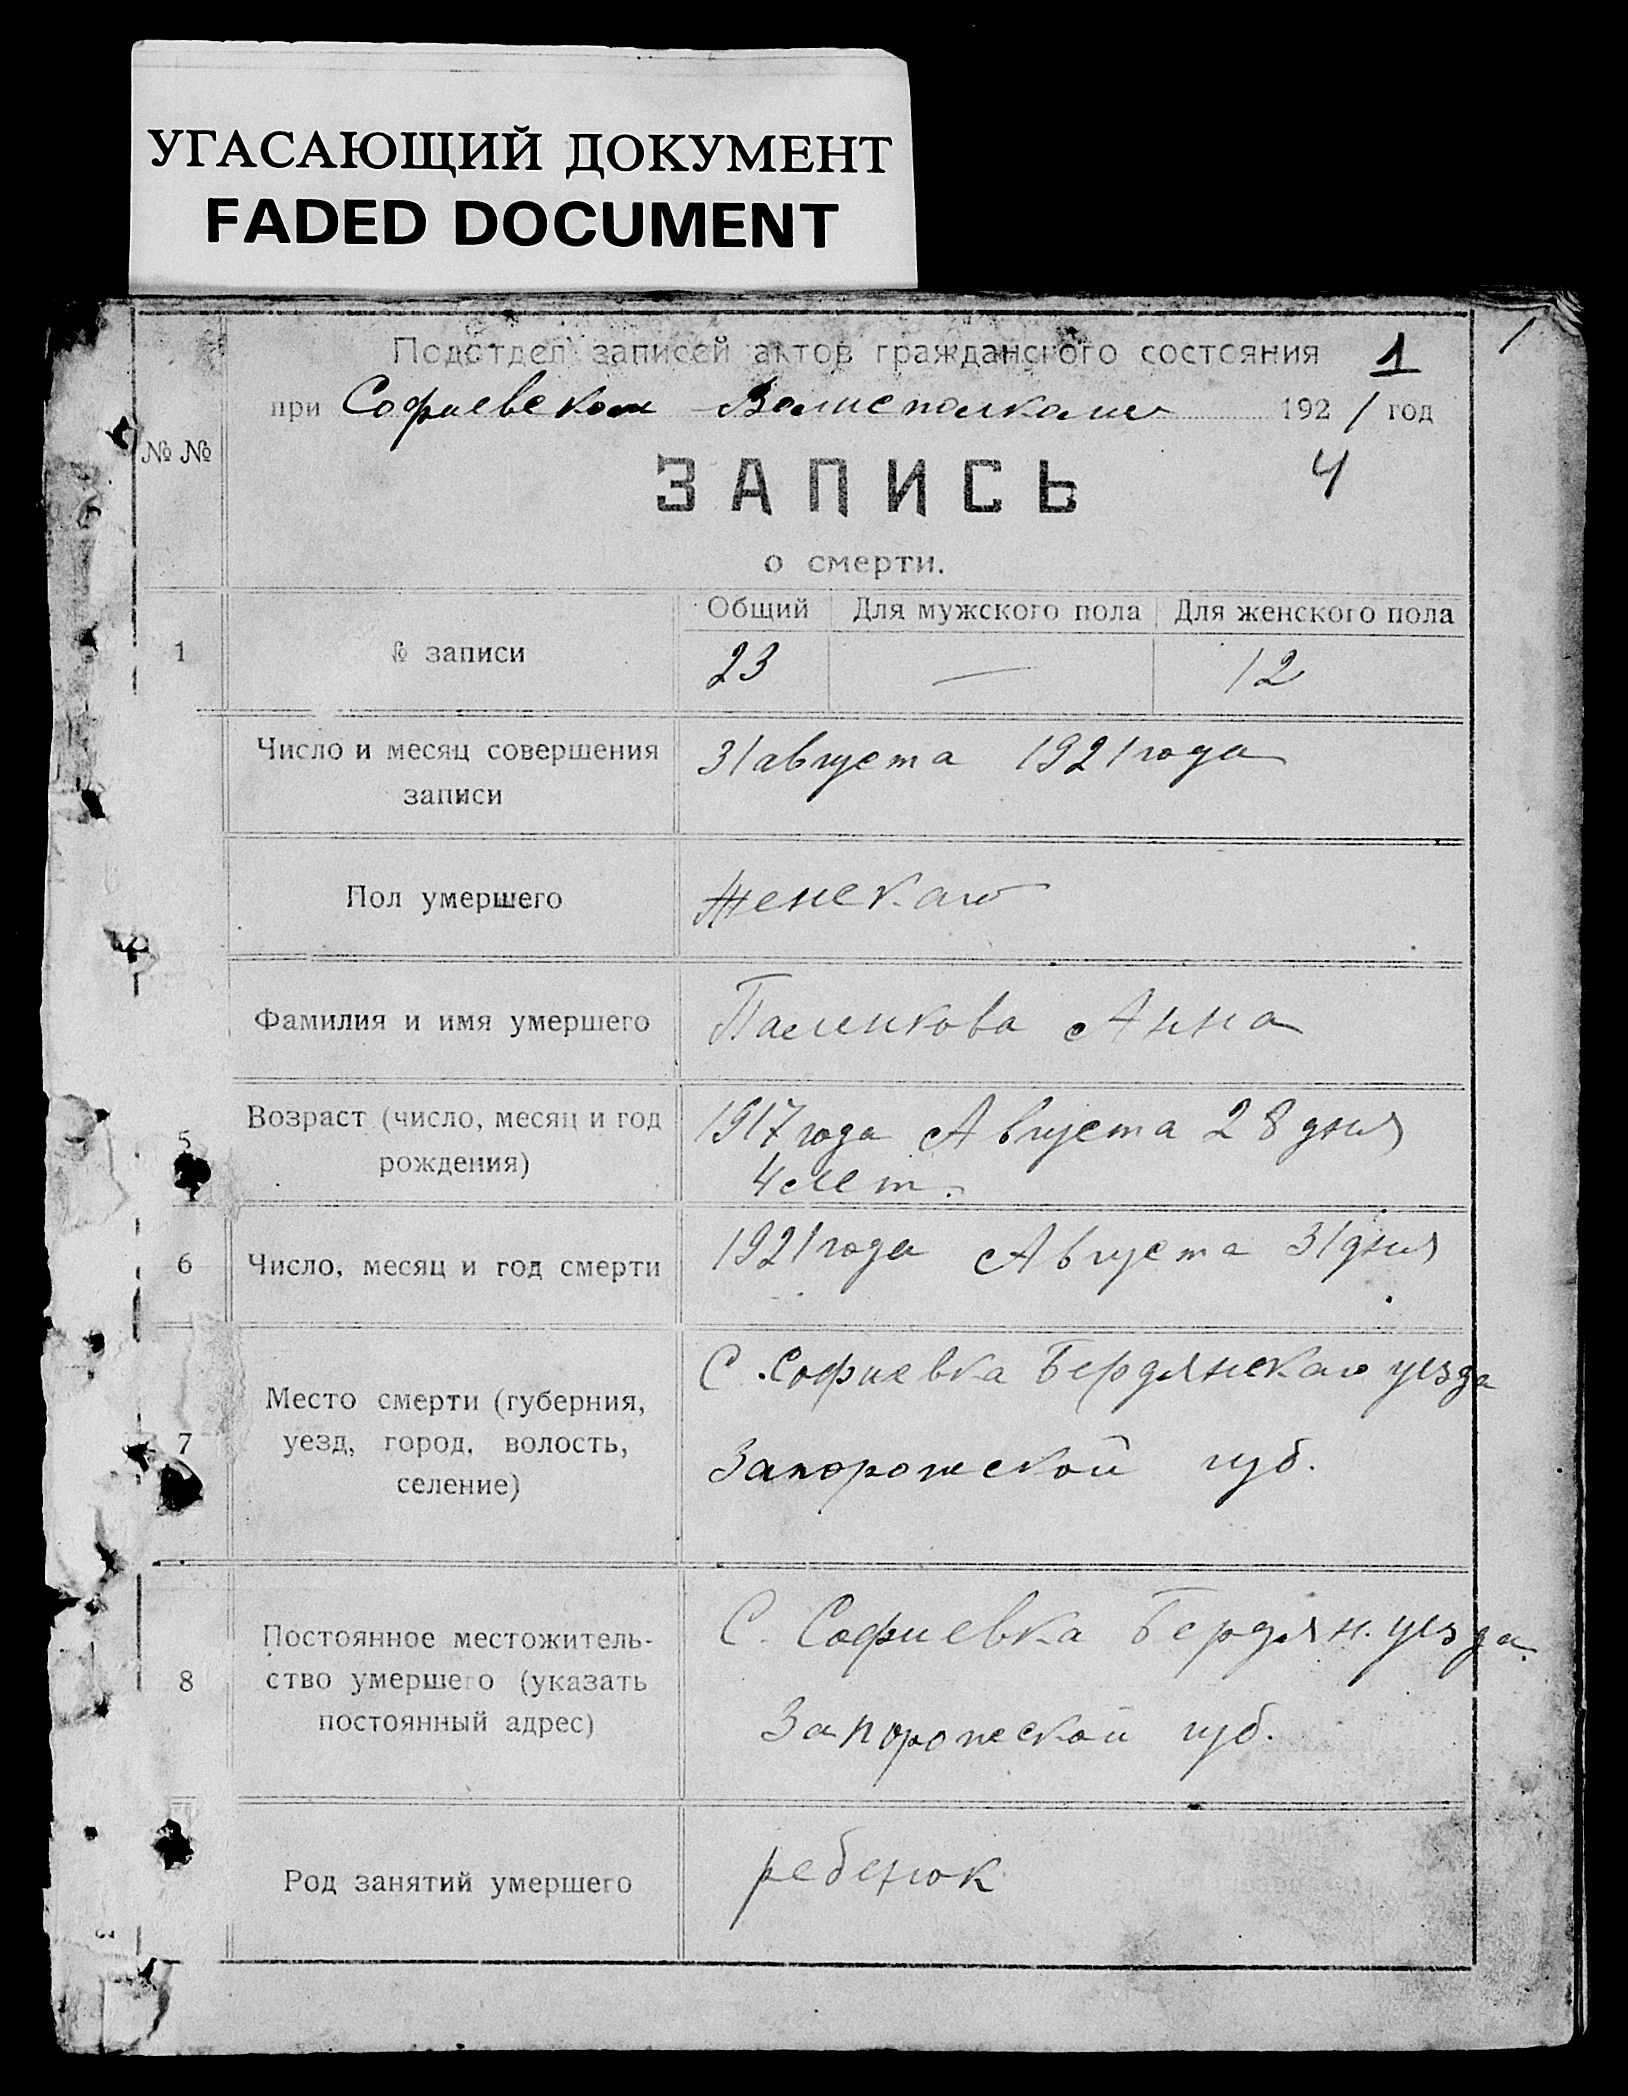 УГАСАЮЩИЙ ДОКУМЕНТ
FADED DOCUMENT
1
Подотдел записей актов гражданского состояния 1
при Софиевском Волисполкоме 1921 год
№ №
4
ЗАПИСЬ
о смерти.
Общий Для мужского пола Для женского пола
1 № записи 23 — 12
Число и месяц совершения 31 августа 1921 года
записи
Пол умершего Женскаго
Фамилия и имя умершего Анна
Возраст (число, месяц и год 1917 года Августа 28 дня
5 рождения) 4 лет.
6 Число, месяц и год смерти 1921 года Августа 31 дня
С. Софиевка Бердянскаго уезда
Место смерти (губерния,
7 уезд, город, волость, Запорожской губ.
селение)
Постоянное местожитель- С. Софиевка Бердян. уезда.
8 ство умершего (указать
постоянный адрес) Запорожской губ.
Род занятий умершего ребенок